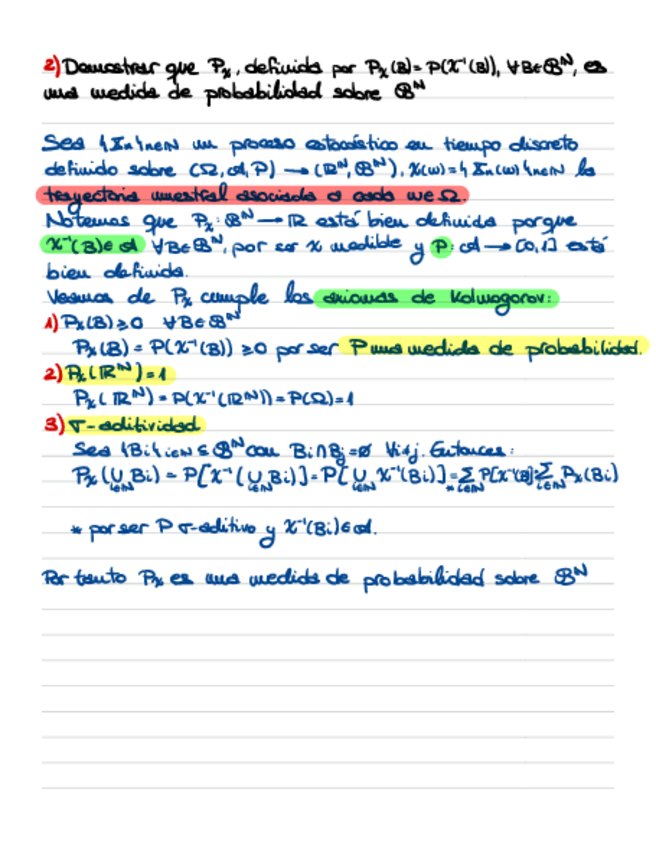 2) Demostrar que Pχ, definida por Pχ(B) = P(χ⁻¹(B)), ∀B∈𝔹ᴺ, es
una medida de probabilidad sobre 𝔹ᴺ
Sea {Xn}n∈N un proceso estocástico en tiempo discreto
definido sobre (Ω, A, P) → (ℝᴺ, 𝔹ᴺ), χ(ω) = {Xn(ω)}n∈N la
trayectoria muestral asociada a cada w∈Ω.
Notemos que Pχ: 𝔹ᴺ → ℝ está bien definida porque
χ⁻¹(B)∈A ∀B∈𝔹ᴺ, por ser χ medible y P: A → [0,1] está
bien definida.
Veamos de Pχ cumple los axiomas de Kolmogorov:
1) Pχ(B) ≥ 0 ∀B∈𝔹ᴺ
Pχ(B) = P(χ⁻¹(B)) ≥ 0 por ser P una medida de probabilidad.
2) Pχ(ℝᴺ) = 1
Pχ(ℝᴺ) = P(χ⁻¹(ℝᴺ)) = P(Ω) = 1
3) σ-aditividad
Sea {Bi}i∈N ⊆ 𝔹ᴺ con Bi∩Bj=∅ ∀i≠j. Entonces:
Pχ(∪i∈N Bi) = P[χ⁻¹(∪i∈N Bi)] = P[∪i∈N χ⁻¹(Bi)] =* Σi∈N P[χ⁻¹(Bi)] = Σi∈N Pχ(Bi)
* por ser P σ-aditivo y χ⁻¹(Bi)∈A.
Por tanto Pχ es una medida de probabilidad sobre 𝔹ᴺ